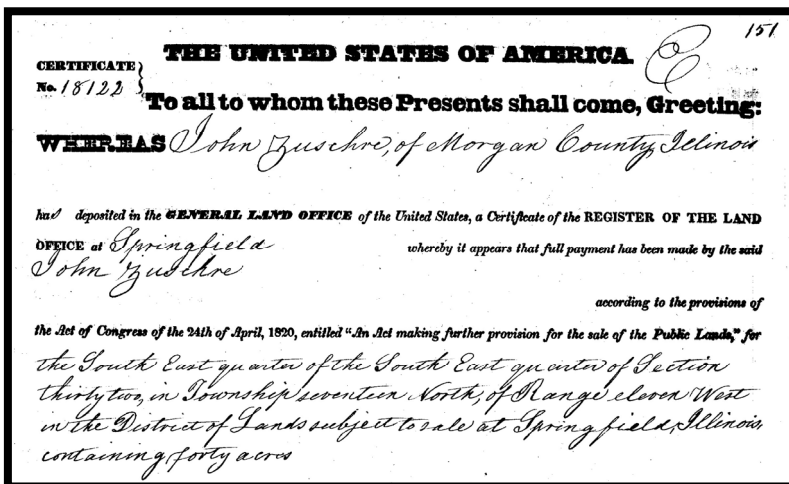 151
THE UNITED STATES OF AMERICA.
CERTIFICATE
No. 18122
To all to whom these Presents shall come, Greeting:
WHEREAS John Zuschre, of Morgan County, Illinois
has deposited in the GENERAL LAND OFFICE of the United States, a Certificate of the REGISTER OF THE LAND
OFFICE at Springfield whereby it appears that full payment has been made by the said
John Zuschre
according to the provisions of
the Act of Congress of the 24th of April, 1820, entitled “An Act making further provision for the sale of the Public Lands,” for
the South East quarter of the South East quarter of Section
thirty two, in Township seventeen North, of Range eleven West
in the District of Lands subject to sale at Springfield, Illinois,
containing forty acres